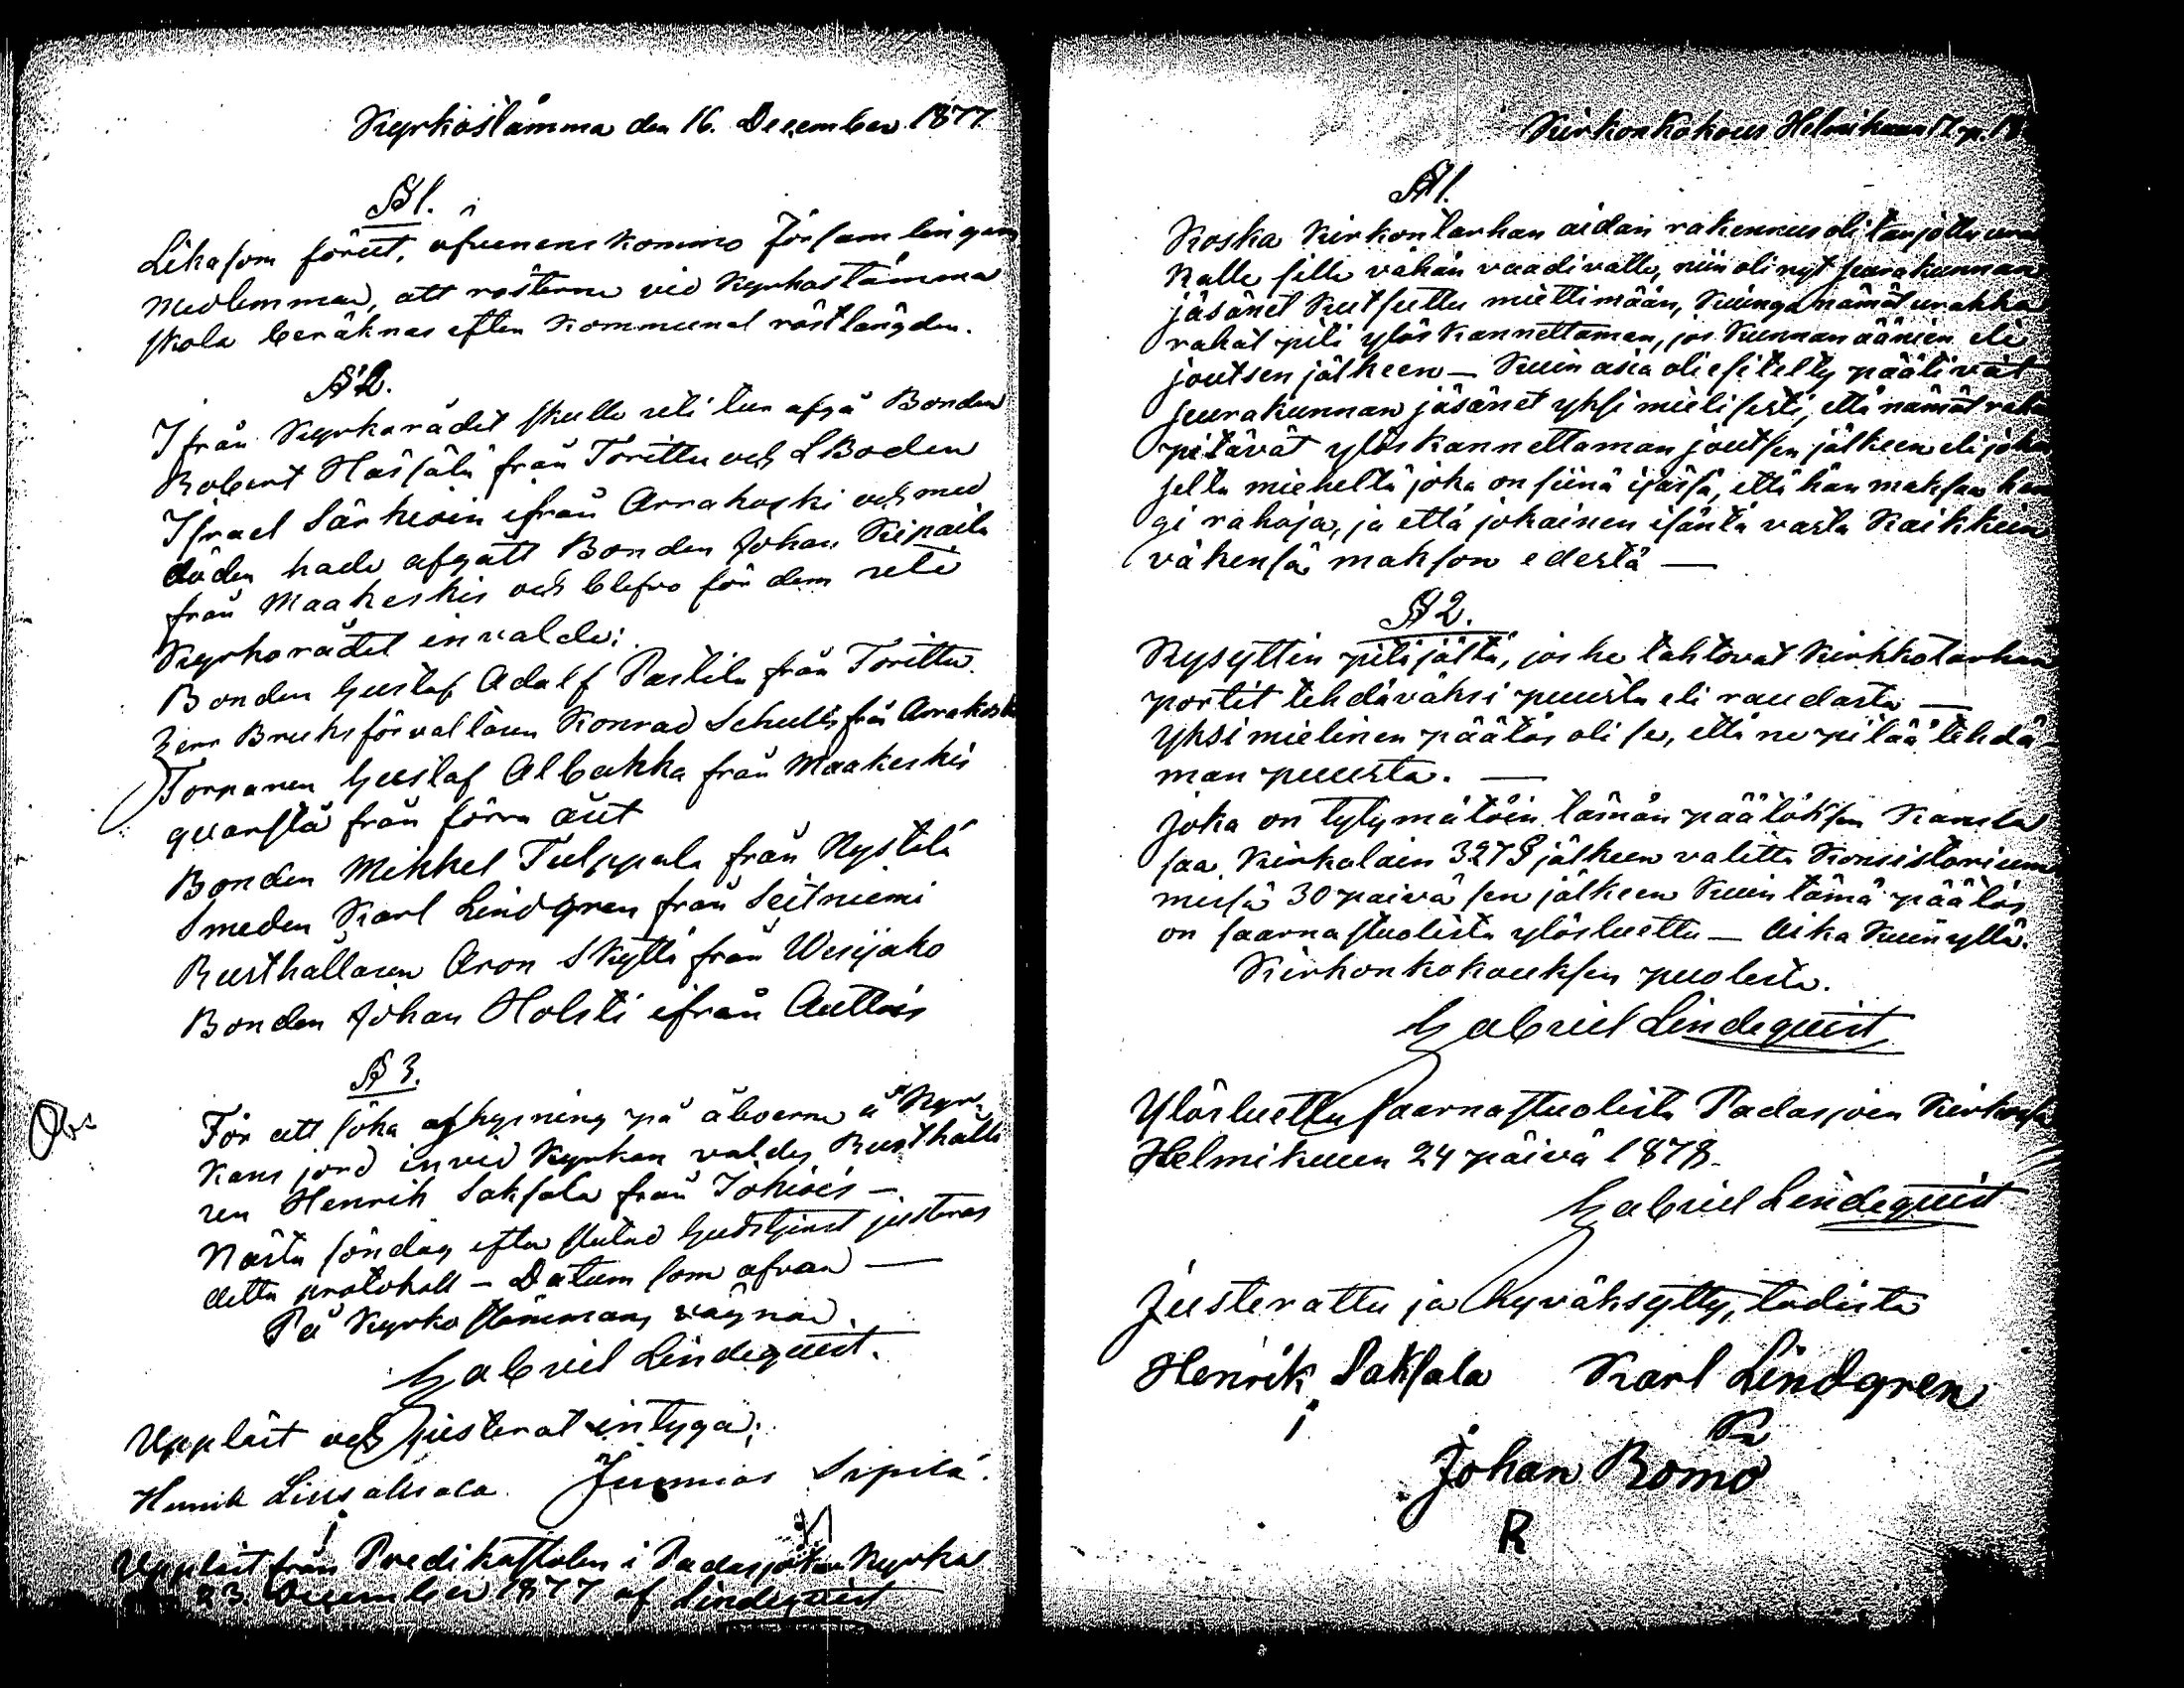 Kyrkostämma den 16. December 1877
§ 1.
Likasom förut, öfverenskommo Församlingens
Medlemmar, att rösterne vid Kyrkostämma
skola beräknas efter Kommunal röstlängden.
§ 2.
Ifrån Kyrkorådet skulle uti tur afgå Bonden
Robert Hassala från Torittu och LBoden
Israel Särkioin ifrån Arrakoski och med
döden hade afgått Bonden Johan Kipaila
från Maakeskis och blefvo för dem uti
Kyrkorådet invalde:
Bonden Gustaf Adolf Pastila från Torittu
Herr Bruksförvaltaren Konrad Schulls från Arrakoski
Torparen Gustaf Albakka från Maakeskis
qvarstå från förra året
Bonden Mikkel Tulppala från Nystölä
Smeden Karl Lindgren från Seitniemi
Rusthållaren Aron Skyttä från Wesijako
Bonden Johan Holsti ifrån Auttois
§ 3.
Obs
För att söka afhysning på åboerne å Kyr-
kans jord invid Kyrkan valdes Rusthålla
ren Henrik Saksala från Jokiois —
Nästa söndag efter slutad Gudstjenst justeras
detta protokoll — Datum som ofvan —
På Kyrkostämmans vägnar
Gabriel Lindequist.
Uppläst och justerat intyga:
Henrik Junias Sipilä.
Uppläst från Predikstolen i Padasjoki Kyrka
23. December 1877 af Lindequist
Kirkon Kokous Helmikuun 17. p. 18
§ 1.
Koska Kirkontarhan aidan rakennus oli tarjottu ura
kalle sille vähän vaadivalle, niin oli nyt seurakunnan
jäsänet Kutsuttu miettimään, Kuinga nämät urakka
rahat piti ylös kannettaman, jos Kunnan äänien eli
joutsen jälkeen — Kuin asia oli esitelty päätivät
seurakunnan jäsänet yhsimielisesti, että nämät raha
pitävät ylöskannettaman joutsen jälkeen eli joka
selta mieheltä joka on siinä ijässä, että hän maksaa hen
gi rahoja, ja että jokainen isäntä vasta Kaikkein
väkensä makson edestä —
§ 2.
Kysyttin pitäjältä, jos he tahtovat Kirkkotarhan
portit tehdäväksi puusta eli raudasta —
Yhsimielinen päätös oli se, että ne pitää tehdä-
män puusta. —
Joka on tytymätöin tämän päätöksen Kansa
saa Kirkolain 327 § jälkeen valitta Konsistoriumi
missä 30 paivä sen jälkeen Kuin tämä päätös
on saarnastuolista ylösluettu — Aika Kuin yllä.
Kirkonkokouksen puolesta.
Gabriel Lindequist
Ylösluettu saarnastuolista Padasjoen Kirkossa
Helmikuun 24 päivä 1878.
Gabriel Lindequist
Justerattu ja hyväksytty, todista
Henrik Saksala Karl Lindgren
Johan Bomo
R